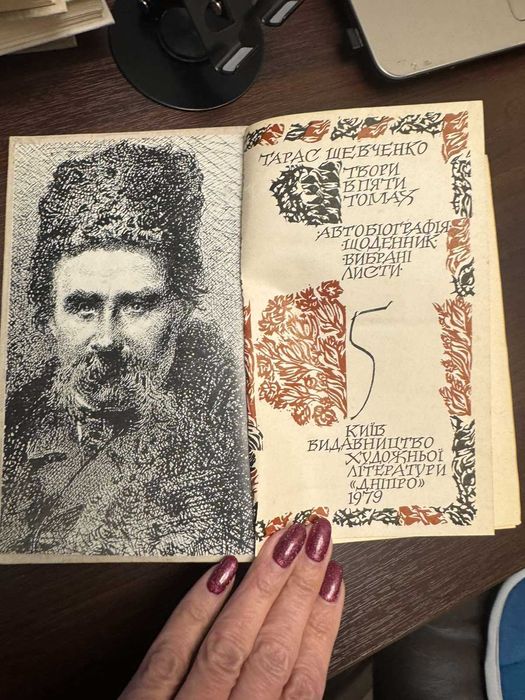 ТАРАС ШЕВЧЕНКО
ТВОРИ
В ПЯТИ
ТОМАХ
·АВТОБІОГРАФІЯ·
ЩОДЕННИК
ВИБРАНІ
ЛИСТИ·
5
КИЇВ
ВИДАВНИЦТВО
ХУДОЖНЬОЇ
ЛІТЕРАТУРИ
«ДНІПРО»
1979